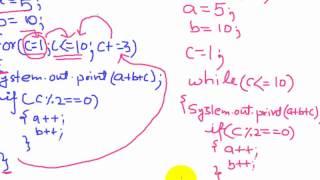 a=5;
b=10;
for(c=1;c<=10;c+=3)
System.out.print(a+b+c);
if(c%2==0)
{a++;
b++;
}
}
a=5;
b=10;
c=1;
while(c<=10)
{System.out.print(a+b+c);
if(c%2==0)
{a++;
b++;
}